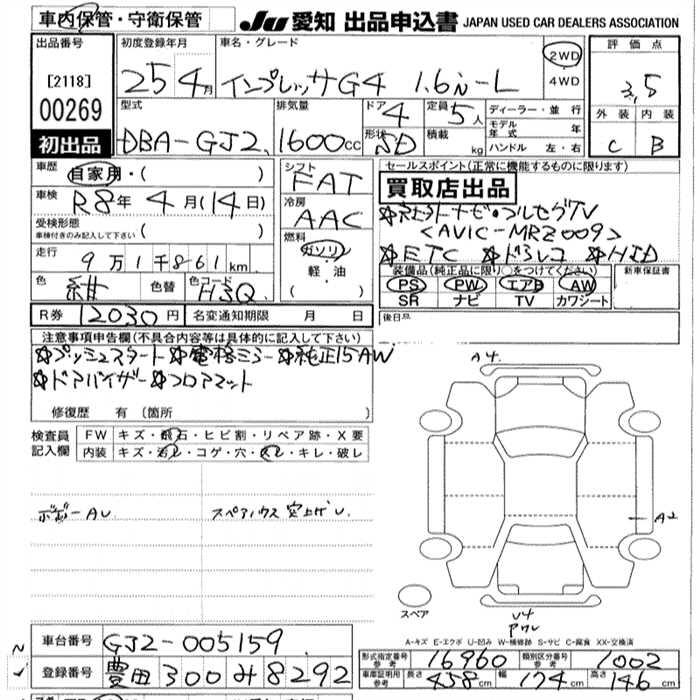 車内保管・守衛保管
JU 愛知 出品申込書 JAPAN USED CAR DEALERS ASSOCIATION
出品番号
[2118]
00269
初出品
初度登録年月
25 4月
車名・グレード
インプレッサG4 1.6i-L
2WD
4WD
評価点
3.5
外装 内装
C B
型式
DBA-GJ2
排気量
1600cc
ドア 4
形状 SD
定員 5人
積載 kg
ディーラー・並行
モデル年式 年
ハンドル 左・右
車歴
自家用・( )
車検
R8年4月(14日)
受検形態
車検付きのみ記入して下さい ( )
走行
9万1千861km
色 紺 色替 色コード H3Q
シフト
FAT
冷房
AAC
燃料
ガソリン
軽油
( )
セールスポイント(正常に機能するものに限ります)
買取店出品
☆社外ナビ・フルセグTV
<AVIC-MRZ009>
☆ETC ☆ドラレコ ☆HID
装備品(純正品に限り○をつけてください)
PS PW エアB AW
SR ナビ TV カワシート
新車保証書
後日品
R券 12030円 名変通知期限 月 日
注意事項申告欄(不具合内容等は具体的に記入して下さい)
☆プッシュスタート ☆電格ミラー ☆純正15AW
☆ドアバイザー ☆フロアマット
修復歴 有 (箇所 )
検査員記入欄
FW キズ・飛石・ヒビ割・リペア跡・X要
内装 キズ・汚レ・コゲ・穴・スレ・キレ・破レ
ボデーAU
スペアハウス 突上げU
A4
A2
スペア
U4
アワレ
A-キズ E-エクボ U-凹み W-補修跡 S-サビ C-腐食 XX-交換済
車台番号 GJ2-005159
登録番号 豊田 300 み 8292
形式指定番号 参考 16960 類別区分番号 参考 1002
車庫証明用 参考 長さ 458cm 幅 174cm 高さ 146cm